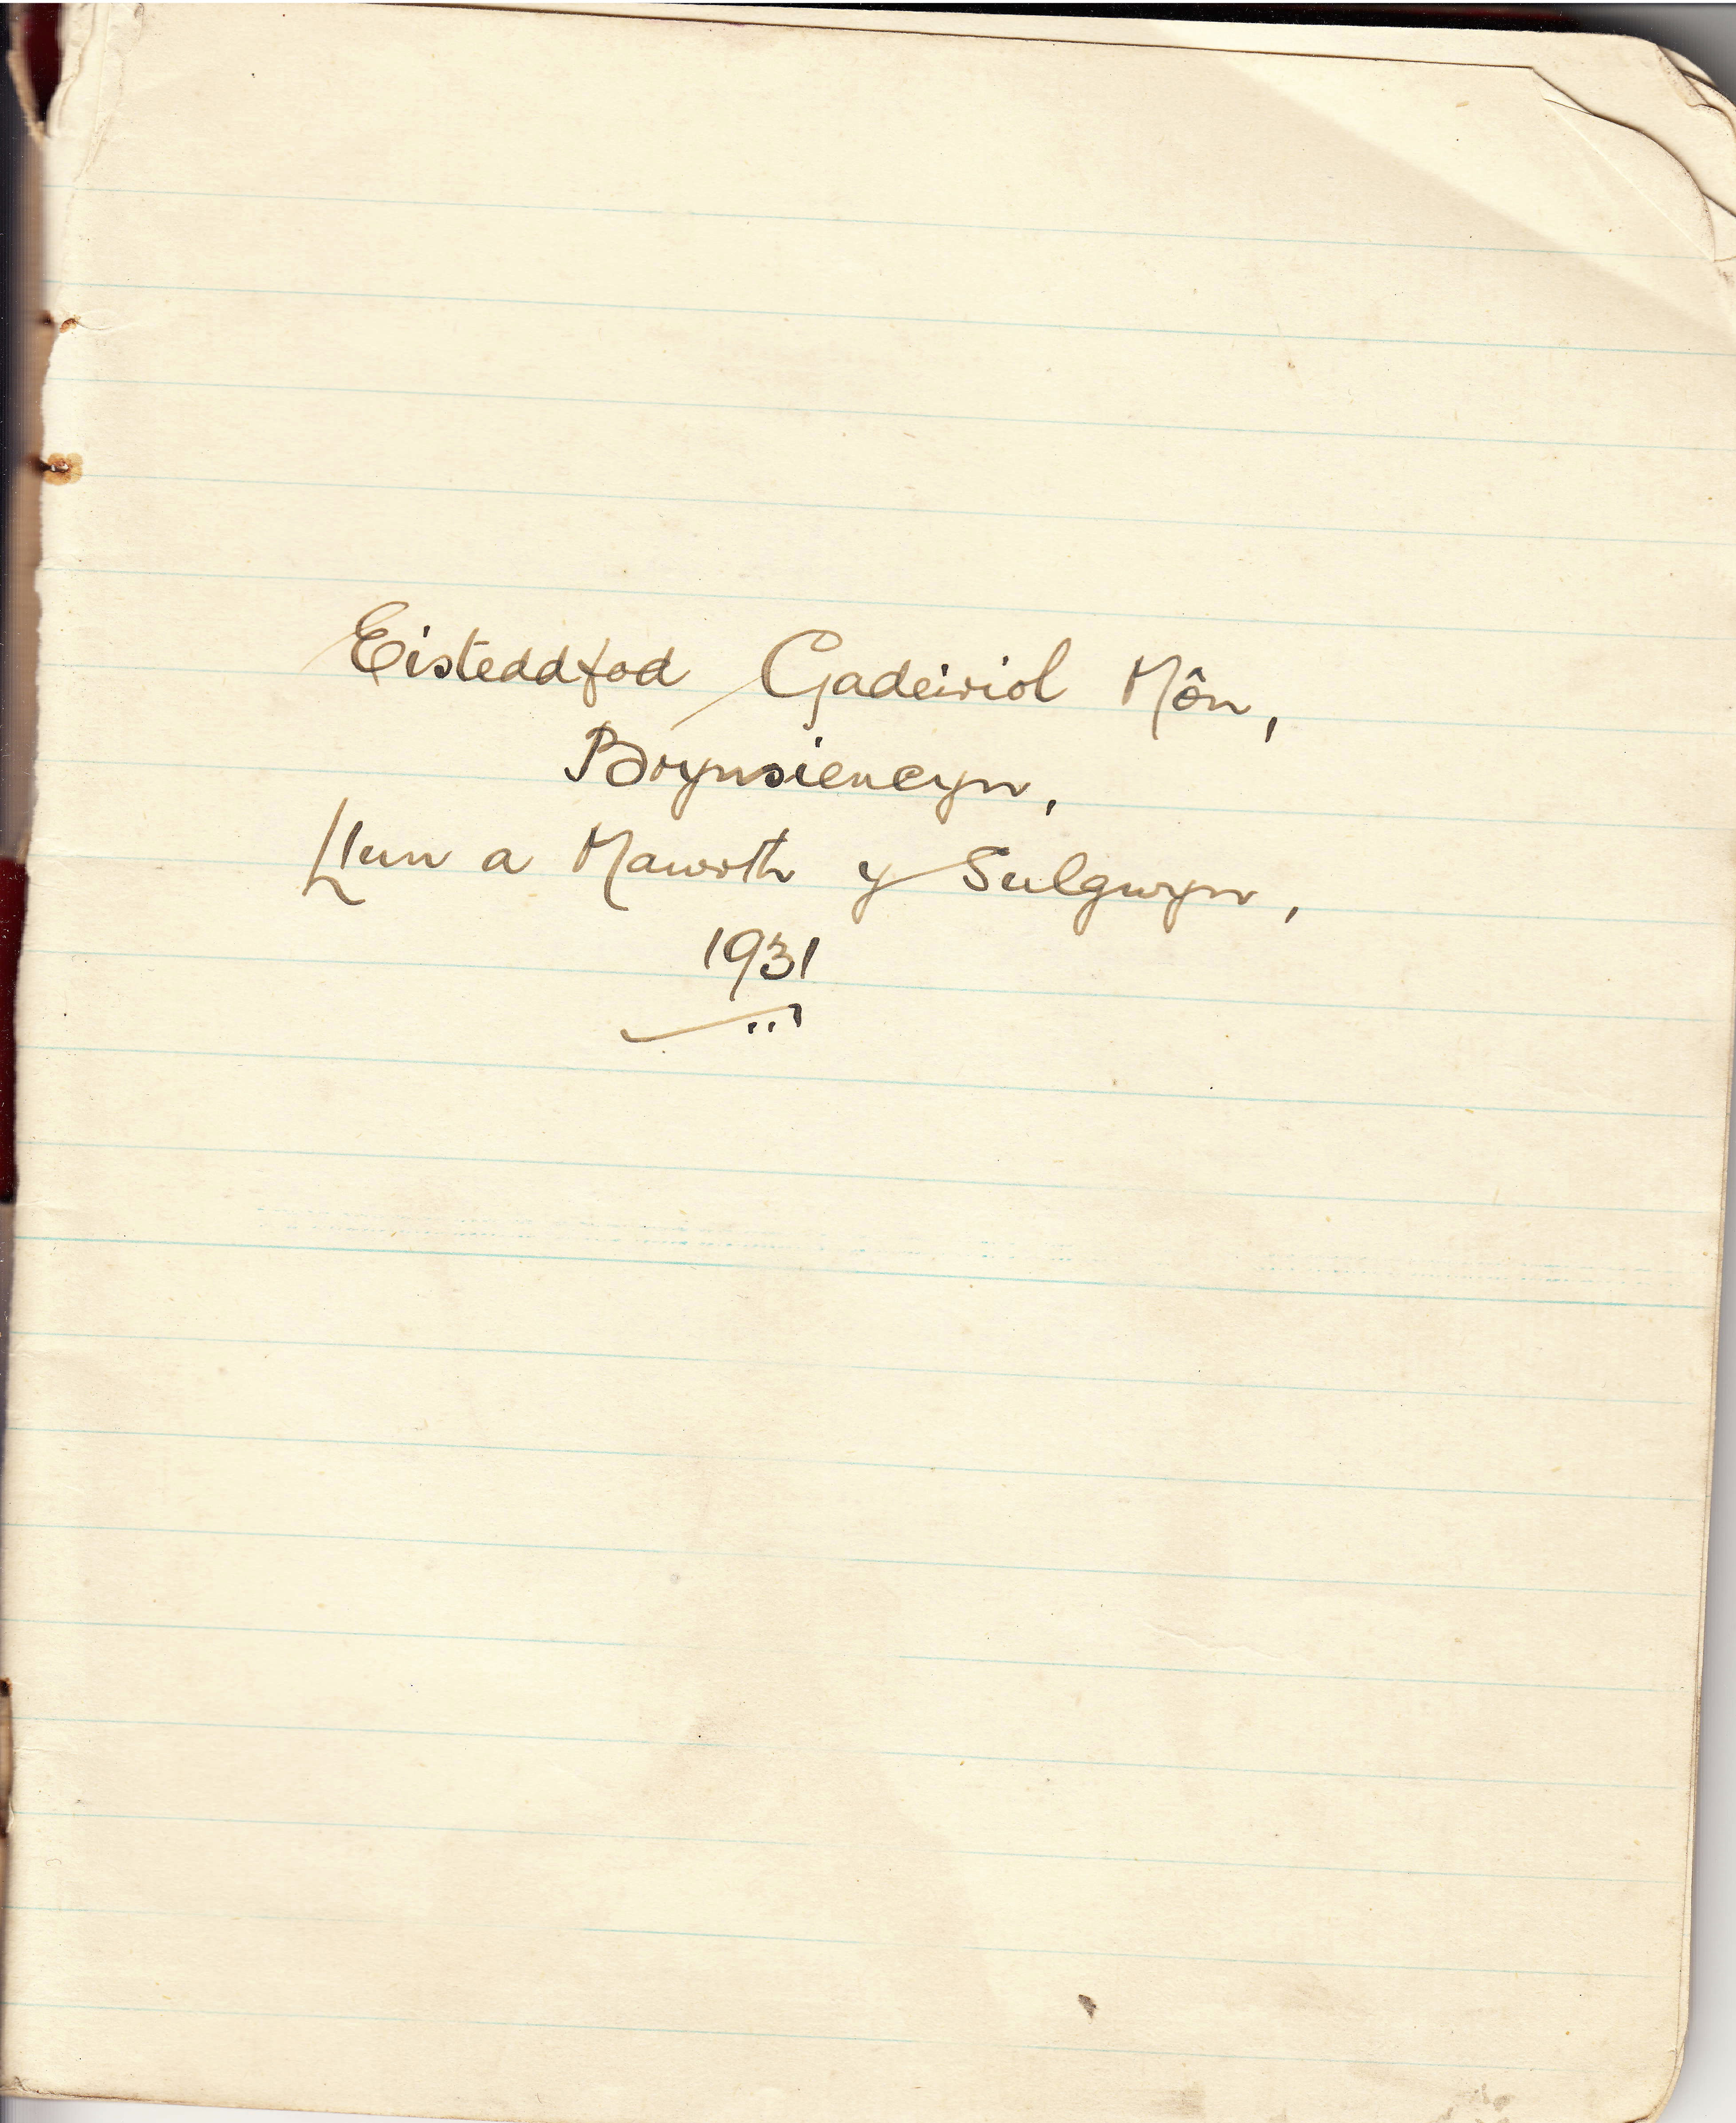 Eisteddfod Gadeiriol Môn,
Brynsiencyn,
Llun a Mawrth y Sulgwyn,
1931